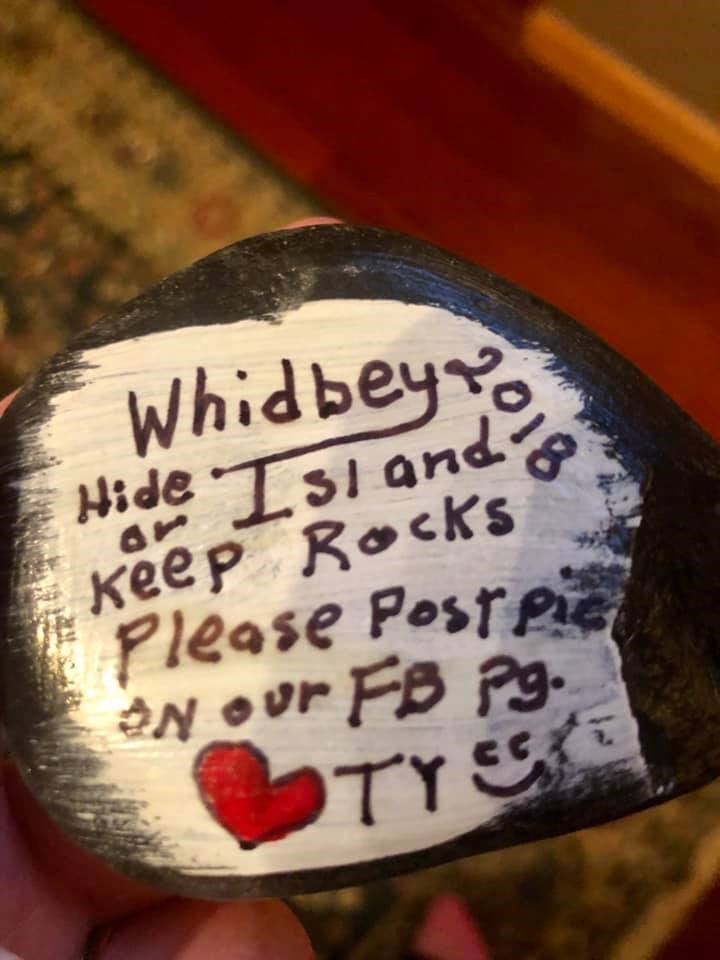 Whidbey 2018
Hide Island
or
Keep Rocks
Please Post pic
on our FB Pg.
TY